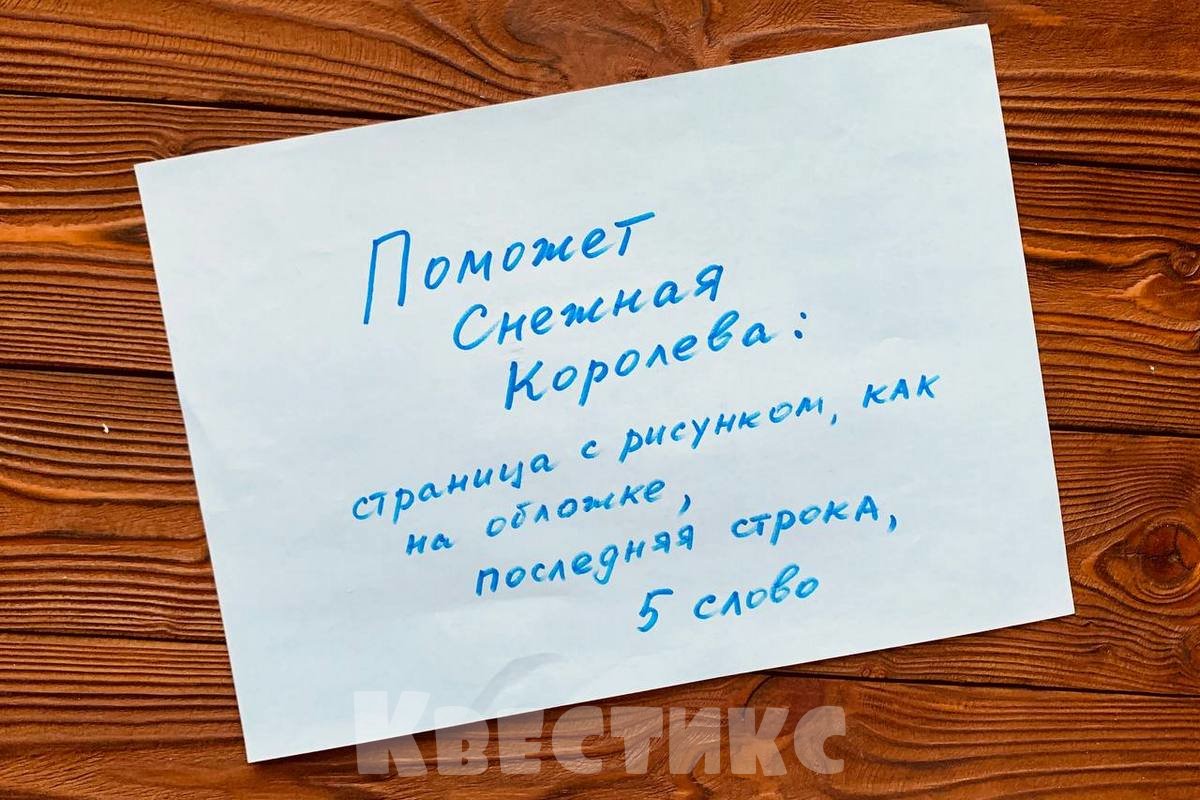 Поможет
Снежная
Королева:
страница с рисунком, как
на обложке,
последняя строка,
5 слово
Квестикс